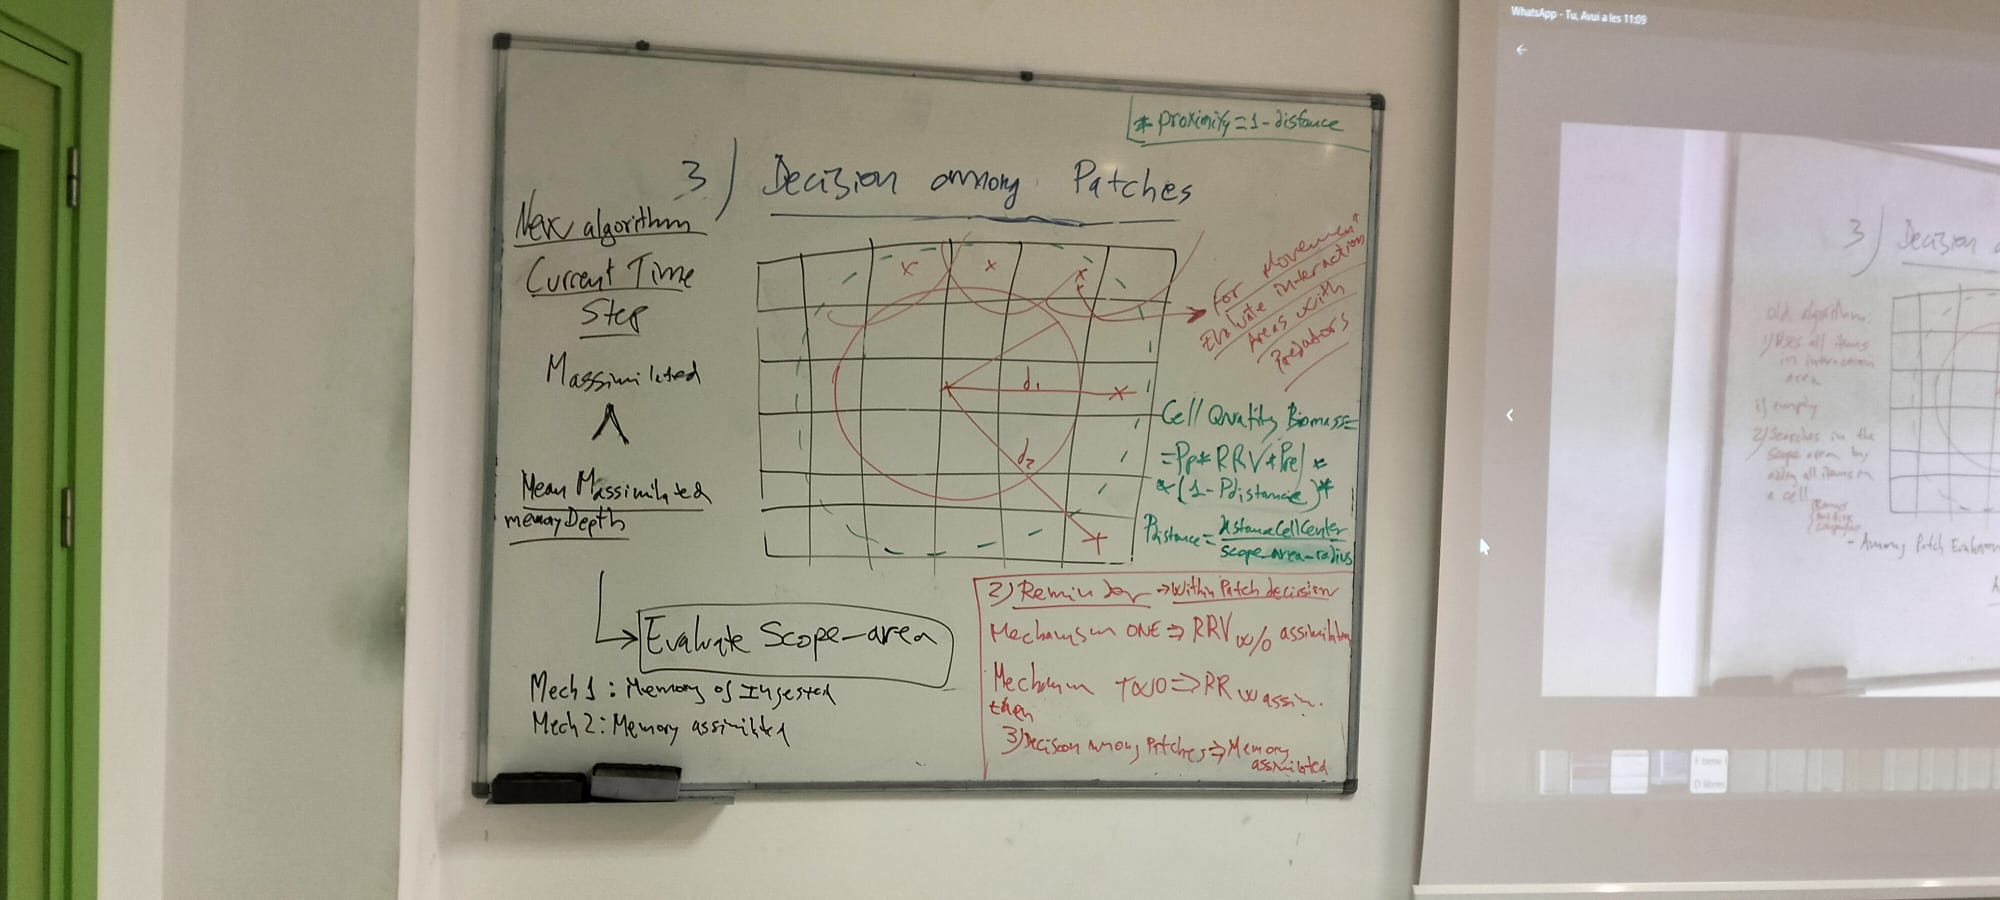 * proximity=1-distance
3) Decision among Patches
New algorithm
Current Time
Step
Massimilated
Λ
Mean Massimilated
memoryDepth
Evaluate Scope-area
Mech 1: Memory of Ingested
Mech 2: Memory assimilated
x x x
d1 x
d2
x
For Movement
Evaluate interaction
Areas with
Predators
Cell Quality Biomass=
=Pp*RRV*Pre) *
*(1-Pdistance)*
Pdistance= distanceCellCenter
scope-area-radius
2) Reminder → Within Patch decision
Mechanism ONE ⇒ RRV w/o assimilation
Mechanism TWO ⇒ RR w assim.
then
3) Decision among Patches ⇒ Memory
assimilated
WhatsApp - Tu, Avui a les 11:09
3) Decision
old algorithm:
1) Uses all items
in interaction
area
1) empty
2) Searches in the
scope area by
adding all items in
a cell
- Among Patch Evaluation